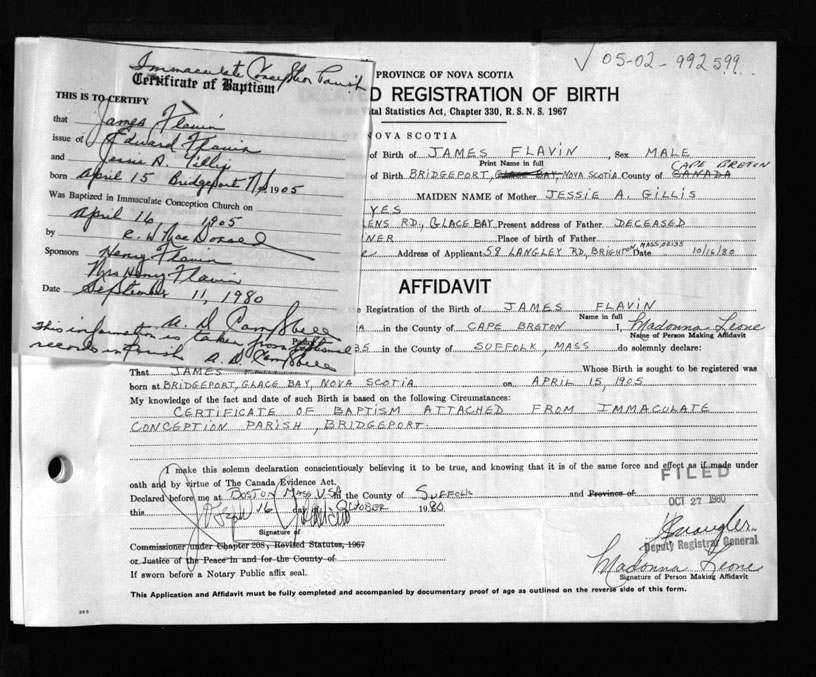 Immaculate Conception Parish
Certificate of Baptism
THIS IS TO CERTIFY
that James Flavin
issue of Edward Flavin
and Jessie A. Gillis
born April 15 Bridgeport N.S. 1905
Was Baptized in Immaculate Conception Church on
April 16 1905
by R. W. MacDonald
Sponsors Henry Flavin
Mrs Henry Flavin
Date September 11, 1980
A. D. Campbell
This information is taken from baptismal
records in Parish A. D. Campbell
✓ 05-02-992599
PROVINCE OF NOVA SCOTIA
D REGISTRATION OF BIRTH
ital Statistics Act, Chapter 330, R.S.N.S. 1967
NOVA SCOTIA
of Birth of JAMES FLAVIN, Sex MALE
Print Name in full CAPE BRETON
of Birth BRIDGEPORT, GLACE BAY, NOVA SCOTIA County of CANADA
MAIDEN NAME of Mother JESSIE A. GILLIS
YES
ENS RD., GLACE BAY Present address of Father DECEASED
NER Place of birth of Father
Address of Applicant 58 LANGLEY RD, BRIGHTON MASS 02135 Date 10/16/80
AFFIDAVIT
e Registration of the Birth of JAMES FLAVIN
Name in full
A in the County of CAPE BRETON I, Madonna Leone
Name of Person Making Affidavit
35 in the County of SUFFOLK, MASS do solemnly declare:
That JAMES Whose Birth is sought to be registered was
born at BRIDGEPORT, GLACE BAY, NOVA SCOTIA on APRIL 15, 1905
My knowledge of the fact and date of such Birth is based on the following Circumstances:
CERTIFICATE OF BAPTISM ATTACHED FROM IMMACULATE
CONCEPTION PARISH, BRIDGEPORT.
I make this solemn declaration conscientiously believing it to be true, and knowing that it is of the same force and effect as if made under
oath and by virtue of The Canada Evidence Act.
FILED
Declared before me at BOSTON MASS USA in the County of SUFFOLK and Province of
OCT 27 1980
this 16 day of OCTOBER 1980
Signature of
Deputy Registrar General
Commissioner under Chapter 208, Revised Statutes, 1967
or Justice of the Peace in and for the County of
Madonna Leone
Signature of Person Making Affidavit
If sworn before a Notary Public affix seal.
This Application and Affidavit must be fully completed and accompanied by documentary proof of age as outlined on the reverse side of this form.